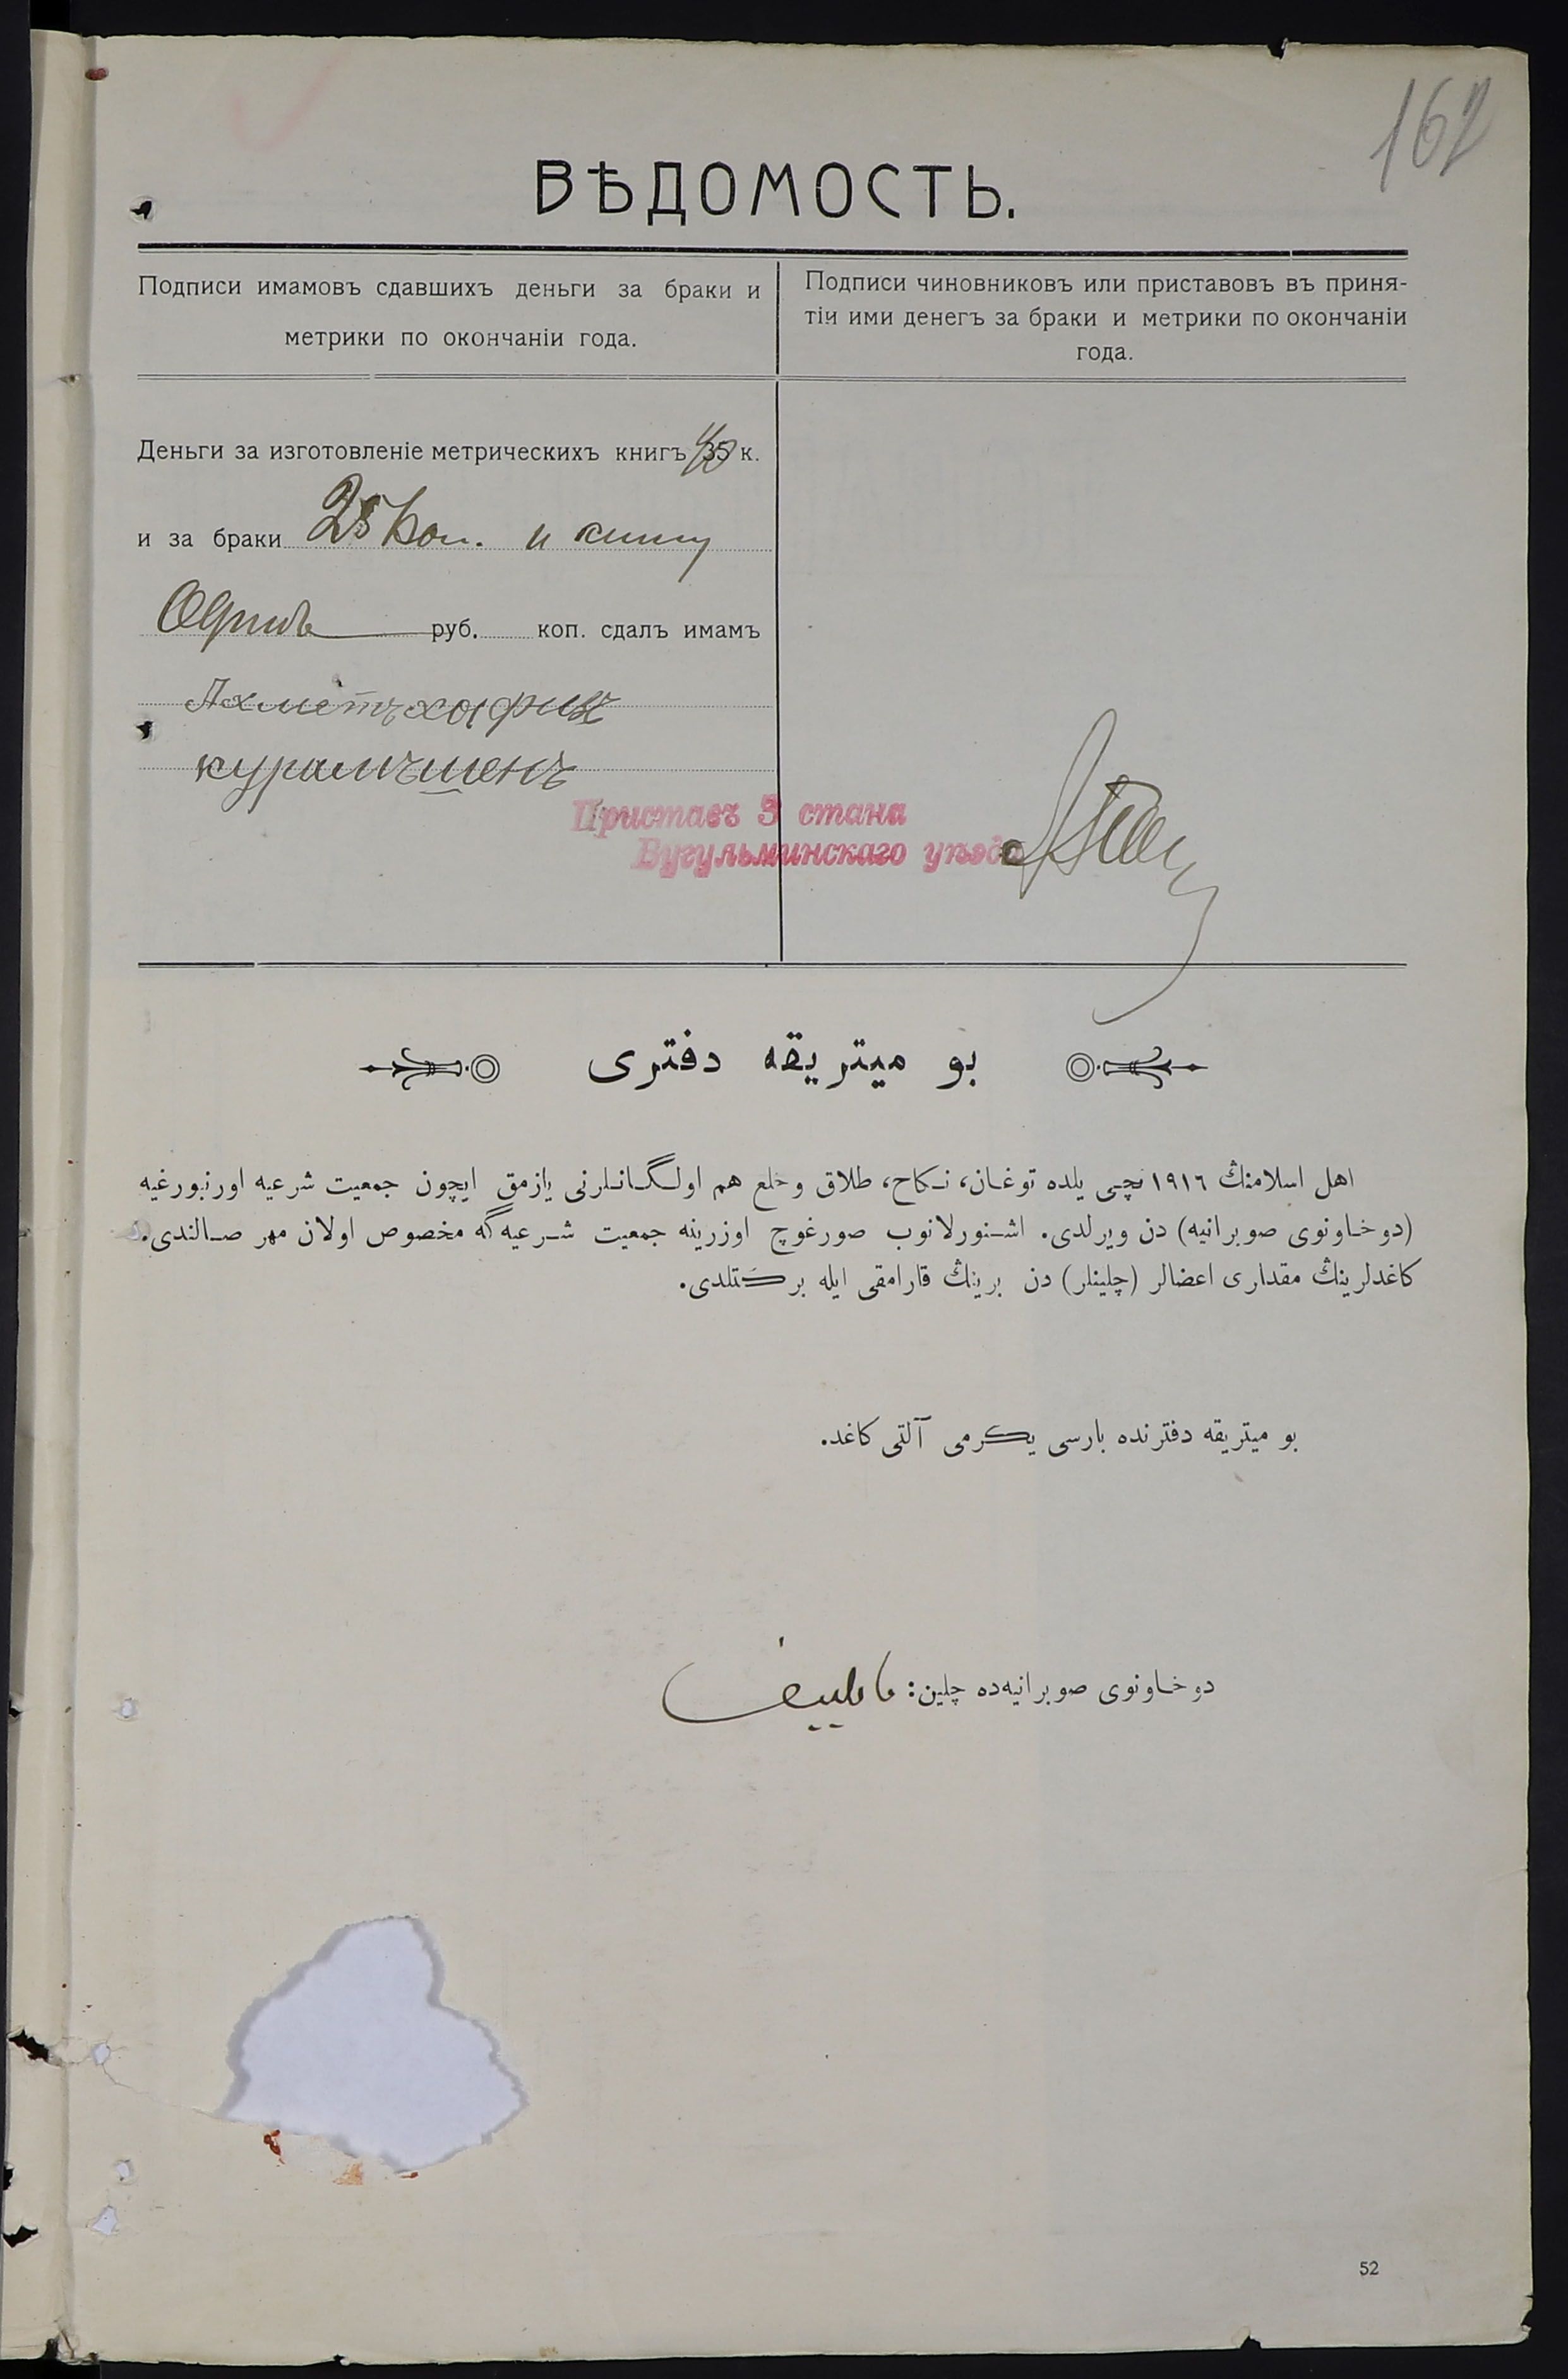 162
ВѢДОМОСТЬ.
Подписи имамовъ сдавшихъ деньги за браки и
метрики по окончаніи года.
Подписи чиновниковъ или приставовъ въ приня-
тіи ими денегъ за браки и метрики по окончаніи
года.
Деньги за изготовленіе метрическихъ книгъ 35 к.
и за браки 25 коп. и книгу
Одинъ руб. коп. сдалъ имамъ
Ахметъхафизъ
курамъшенъ
Приставъ 3 стана
Бугульминскаго уѣзда
بو میتریقه دفتری
اهل اسلامنڭ ١٩١٦ نچی یلده توغان، نکاح، طلاق وخلع هم اولگانلرنی یازمق ایچون جمعیت شرعیه اورنبورغیه
(دوخاونوی صوبرانیه) دن ویرلدی. اشنورلانوب صورغوچ اوزرینه جمعیت شرعیه‌گه مخصوص اولان مهر صالندی.
کاغدلرینڭ مقداری اعضالر (چلینلر) دن برینڭ قارامقی ایله برکتلدی.
بو میتریقه دفترنده بارسی یکرمی آلتی کاغد.
دوخاونوی صوبرانیه‌ده چلین:
52